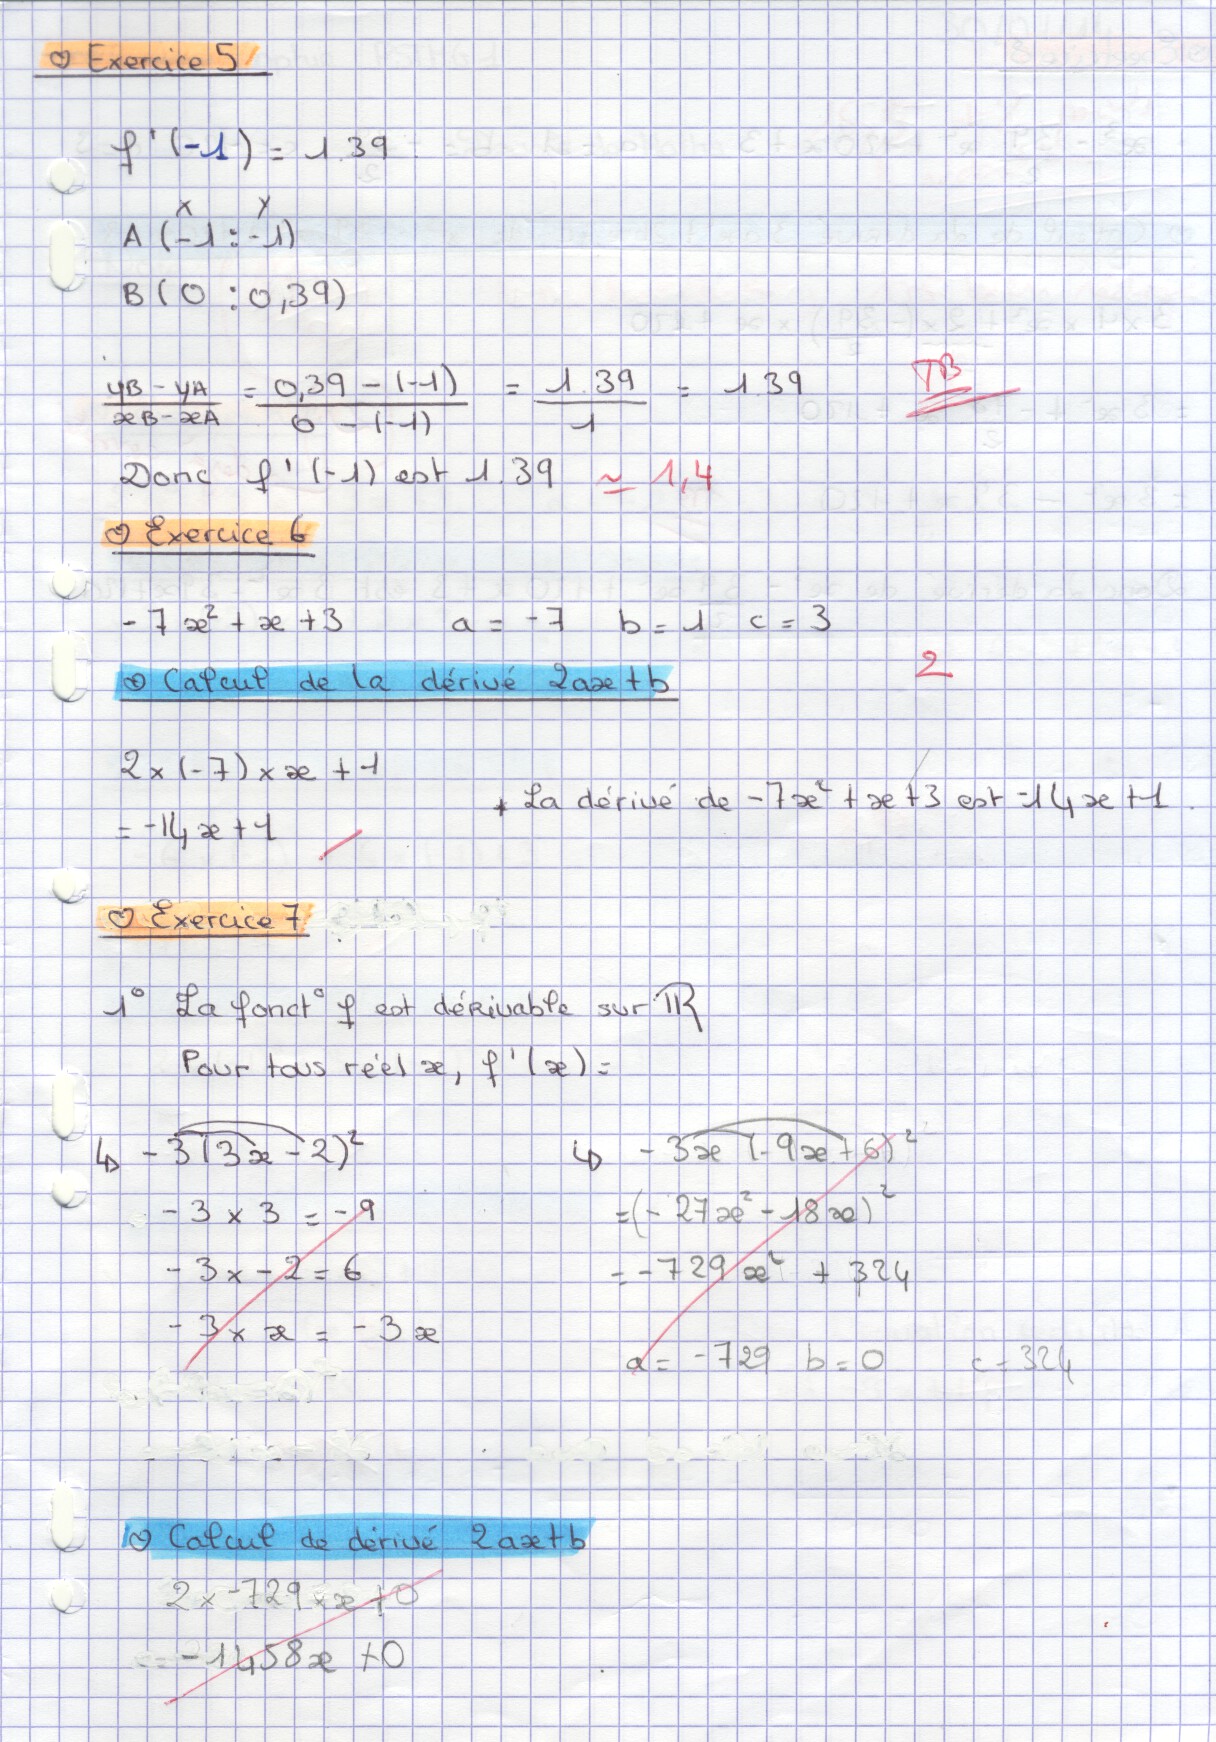 Exercice 5
f'(-1) = 1.39
x y
A (-1 : -1)
B ( 0 : 0,39)
yB - yA / xB - xA = 0,39 - (-1) / 0 - (-1) = 1.39 / 1 = 1.39 TB
Donc f'(-1) est 1.39 ≃ 1,4
Exercice 6
-7x² + x + 3 a = -7 b = 1 c = 3
2
Calcul de la dérivé 2ax+b
2 x (-7) x x + 1
* La dérivé de -7x² + x + 3 est -14x + 1.
= -14x + 1
Exercice 7
1° La fonct° f est dérivable sur ℝ
Pour tous réel x, f'(x) =
↳ -3(3x - 2)²
-3 x 3 = -9
-3 x -2 = 6
-3 x x = -3x
↳ -3x (-9x + 6)²
= (-27x² - 18x)²
= -729x² + 324
a = -729 b = 0 c = 324
Calcul de dérivé 2ax+b
2 x -729 x x + 0
= -1458x + 0